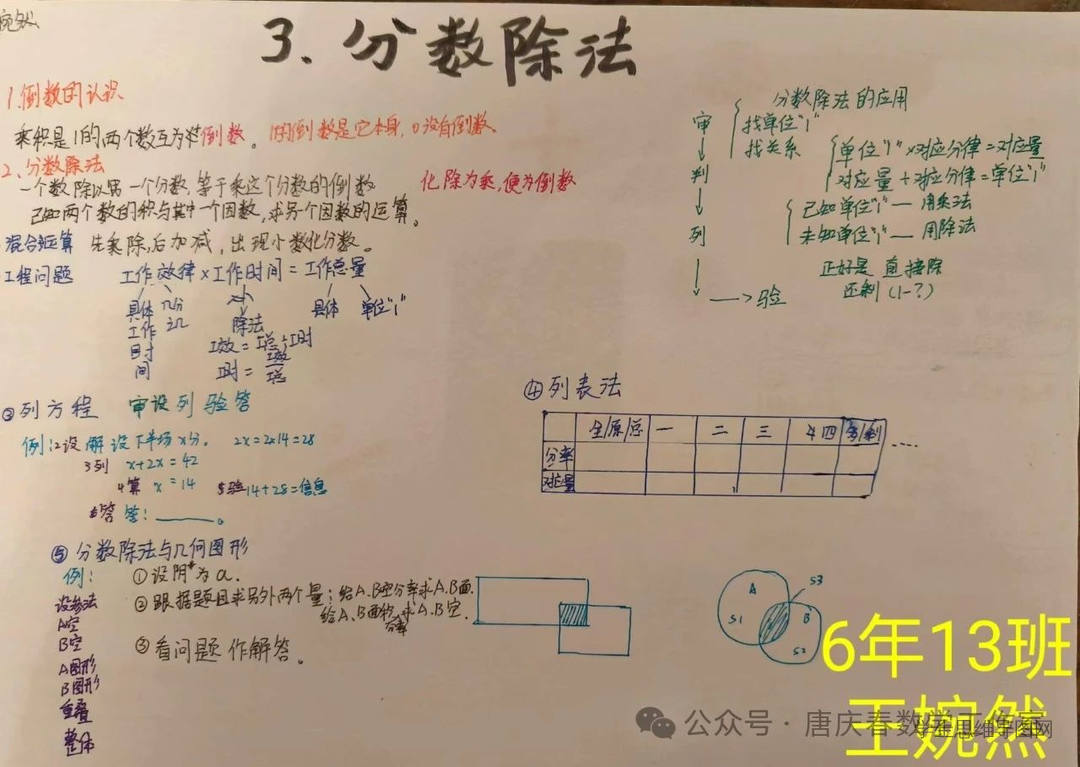 婉然
3. 分数除法
1.倒数的认识
乘积是1的两个数互为倒数。1的倒数是它本身,0没有倒数
2、分数除法
一个数除以另一个分数,等于乘这个分数的倒数
化除为乘,便为倒数
已知两个数的积与其中一个因数,求另个因数的运算。
混合运算 先乘除,后加减,出现小数化分数。
工程问题 工作效律×工作时间=工作总量
具体 几分 具体 单位"1"
工作 之几 除法
时 工效=工总÷工时
间 工时=
③列方程 审设列验答
例:2设 解设下半场x分。 2x=2×14=28
3列 x+2x=42
4算 x=14 5验14+28=信息
答 答:
⑤分数除法与几何图形
例: ①设阴为a.
②跟据题目求另外两个量:给A.B空分率求A.B面.
给A、B面积,求A.B空.
分率
③看问题作解答。
设参法
A空
B空
A图形
B图形
重叠
整体
分数除法的应用
审 找单位"1"
找关系
单位"1"×对应分律=对应量
判 对应量÷对应分律=单位"1"
已知单位"1"— 用乘法
列 未知单位"1"— 用除法
正好是 直接除
还剩(1-?)
验
④列表法
全/原/总 一 二 三 四 剩
分率
对应量
A S3
S1 B
S2
6年13班
王婉然
公众号·唐庆春数学工作室
学生思维导图网